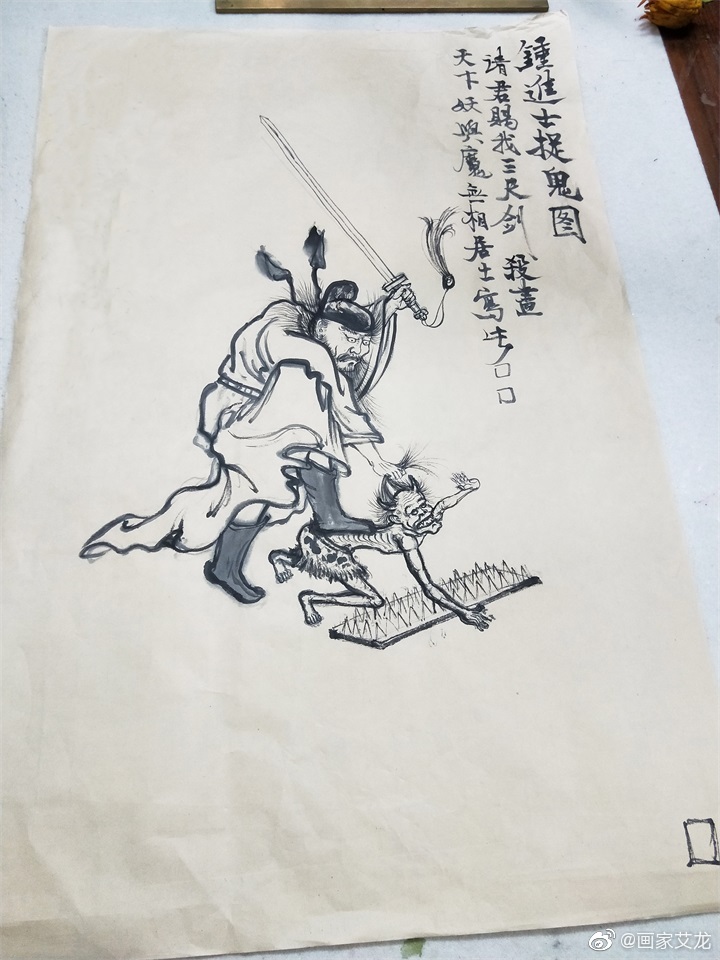 鍾進士捉鬼图
请君賜我三尺剑 殺盡
天下妖與魔無相居士寫
@画家艾龙